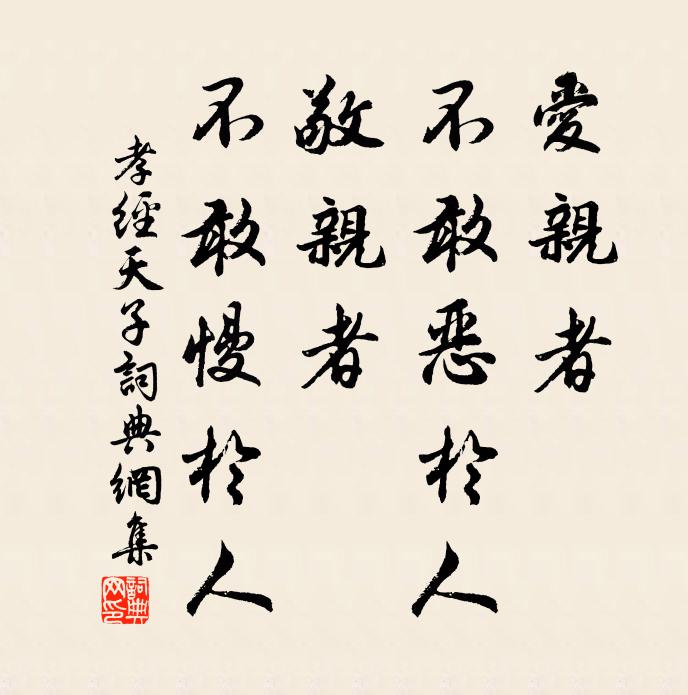 愛親者
不敢恶於人
敬親者
不敢慢於人
孝經天子詞典網集
詞典網印